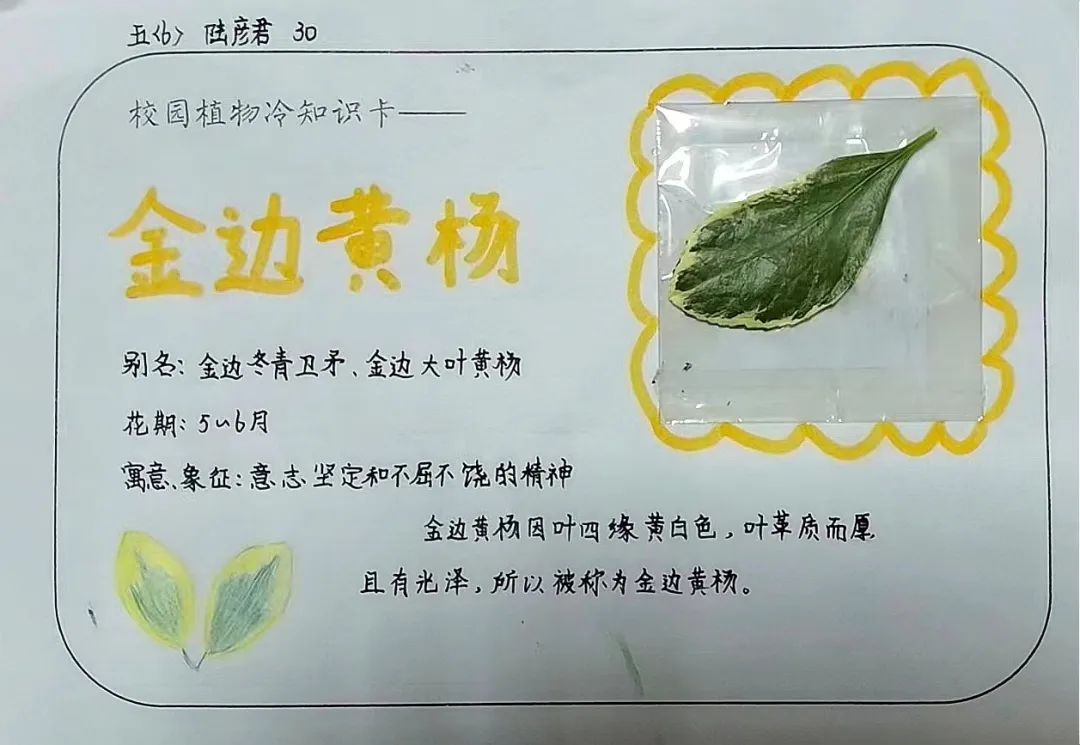 五<6> 陆彦君 30
校园植物冷知识卡——
金边黄杨
别名：金边冬青卫矛、金边大叶黄杨
花期：5~6月
寓意、象征：意志坚定和不屈不饶的精神
金边黄杨因叶四缘黄白色，叶革质而厚
且有光泽，所以被称为金边黄杨。